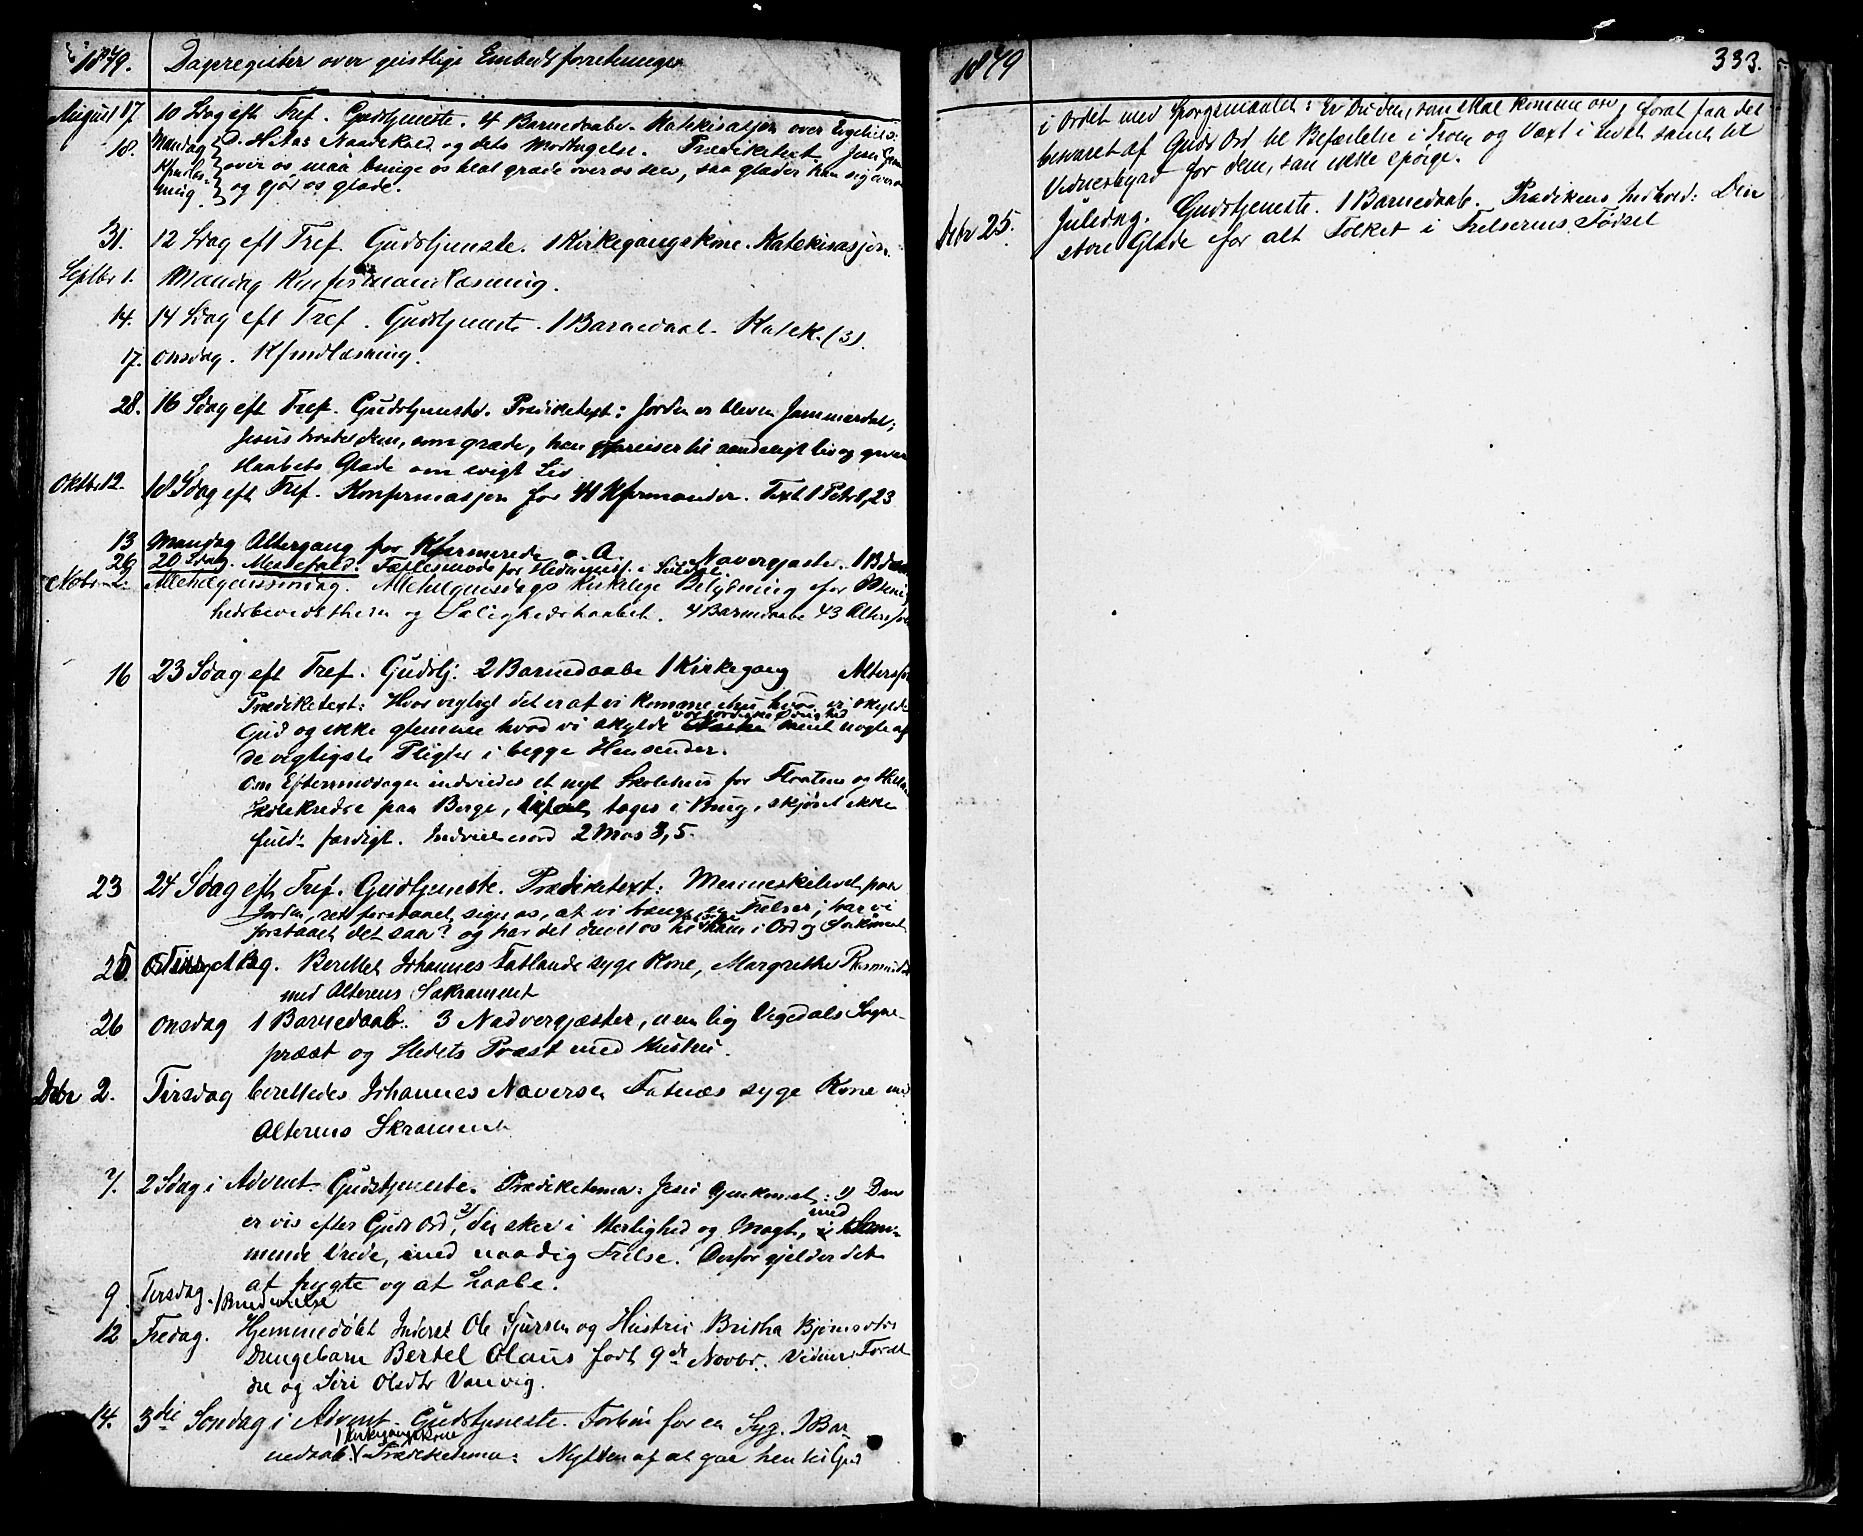 1879. Dagsregister over geistlige Embedsforretninger
August 17. 10 Sdag eft Tref. Gudstjeneste. 4 Barnedaabe. Katekisasjon over
18. Mandag D. H. As Naadekald og dets Modtagelse. Prædiketext Jesu
over os maa bringe os til at græde over os selv, saa glæder han sig over os
og gjør os glade.
31. 12 Sdag eft Tref. Gudstjeneste. 1 Kirkegangskone. Katekisasjon.
Septbr 1. Mandag Konfirmantlæsning.
14. 14 Sdag eft Tref. Gudstjeneste. 1 Barnedaab. Katek. (3).
17. Onsdag. Kfmdlæsning.
28. 16 Sdag eft Tref. Gudstjeneste. Prædiketext: Jorden er bleven Jammerdal;
Jesus trøster dem, som græde, han opreiser til aandeligt liv og giver
Haabets Glæde om evigt Liv
Oktbr 12. 18 Sdag eft Tref. Konfirmasjon for 41 Kfirmander. Text 1 Petr 1,23
13 Mandag Altergang for Kfirmerede o. A. Navergjester. 1 B
26 20 Sdag. Messefald. Fællesmøde for Hedningem. i
Novbr 2. Allehelgenssøndag. Allehelgensdags kirkelige Betydning for
hedsbevidstheden og Salighedshaabet. 4 Barnedaabe 43 Altersf
16 23 Sdag eft Tref. Gudstj. 2 Barnedaabe 1 Kirkegang Altersf
Prædiketext: Hvor vigtigt det er at vi komme ihu hvad vi skylde
Gud og ikke glemme hvad vi skylde vor jordiske Øvrighed samt nogle af
de vigtigste Pligter i begge Henseender.
Om Eftermiddagen indviedes et nyt Skolehus for Flaatene og
Skolekredse paa Berge, tages i Brug, skjønt ikke
fuldt færdigt. Indvielsesord 2 Mos 3,5.
23 24 Sdag eft Tref. Gudstjeneste. Prædiketext: Menneskelivet paa
Jorden, ret forstaaet, siger os, at vi trænge en Frelser; har vi
forstaaet det saa? og har det drevet os til ham i Ord og Sakrament
25 Tirsdag. Berettet Johannes Fatlands syge Kone, Margrethe Rasmusd
med Alterens Sakrament
26 Onsdag 1 Barnedaab. 3 Nadvergjæster, nemlig Vegedals Sogne-
præst og Stedets Præst med Hustru.
Debr 2. Tirsdag berettedes Johannes Naversen Fatnæs syge Kone med
Alterens Skrament
7. 2 Sdag i Advent. Gudstjeneste. Prædiketema: Jesu Gjenkomst: 1) Den
er vis efter Guds Ord, 2) den sker i Herlighed og Magt, med flam-
mende Vrede, med naadig Frelse. Derfor gjelder det
at frygte og at haabe.
9 Tirsdag. 1 Brudevielse
12 Fredag. Hjemmedøbt Inderst Ole Sjursen og Hustru Britha Bjørnsdtrs
Drengebarn Bertel Olaus født 9de Novbr. Vidner: Foræl-
dre og Siri Olsdtr Vanvig.
14. 3die Søndag i Advent. Gudstjeneste. Forbøn for en Syg. 1 Bar-
nedaab. 1 Kirkegangskone Prædiketema: Nytten af at gaa hen til Gud
1879 333.
i Ordet med Spørgsmaalet: Er Du den, som skal komme osv, forat faa det
besvaret af Guds Ord til Befæstelse i Troen og Vext i Livet samt til
Vidnesbyrd for dem, som ikke spørge.
Debr 25. Juledag. Gudstjeneste. 1 Barnedaab. Prædikens Indhold: Den
store Glæde for alt Folket i Frelserens Fødsel